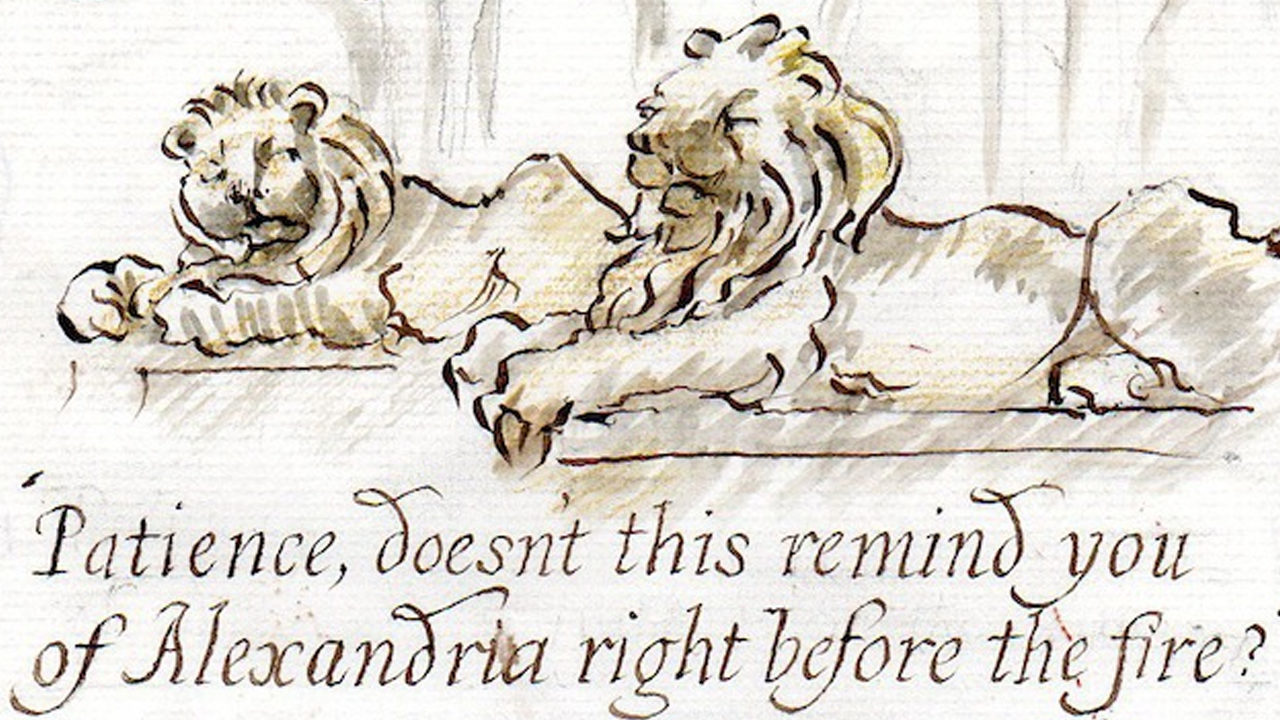 'Patience, doesn't this remind you
of Alexandria right before the fire?'